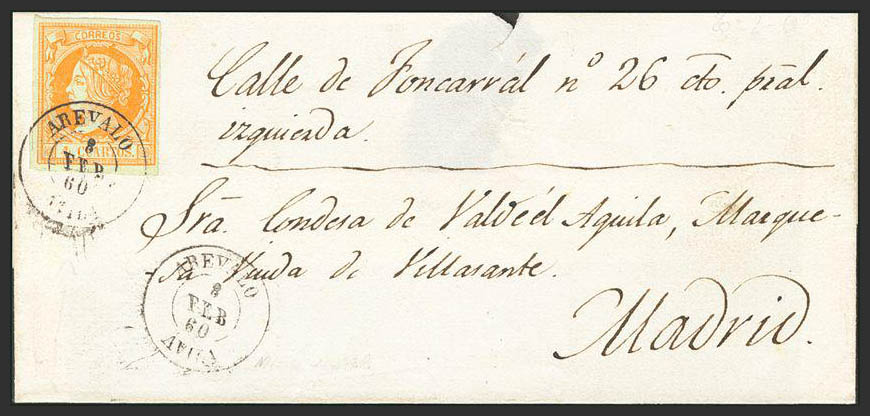 CORREOS
CUARTOS
AREVALO
8
FEB
60
AVILA
Calle de Foncarrál nº 26 cto. pral.
izquierda.
Sra. Condesa de Valdeél Aguila, Marque-
-sa Viuda de Villasante.
Madrid.
AREVALO
8
FEB
60
AVILA